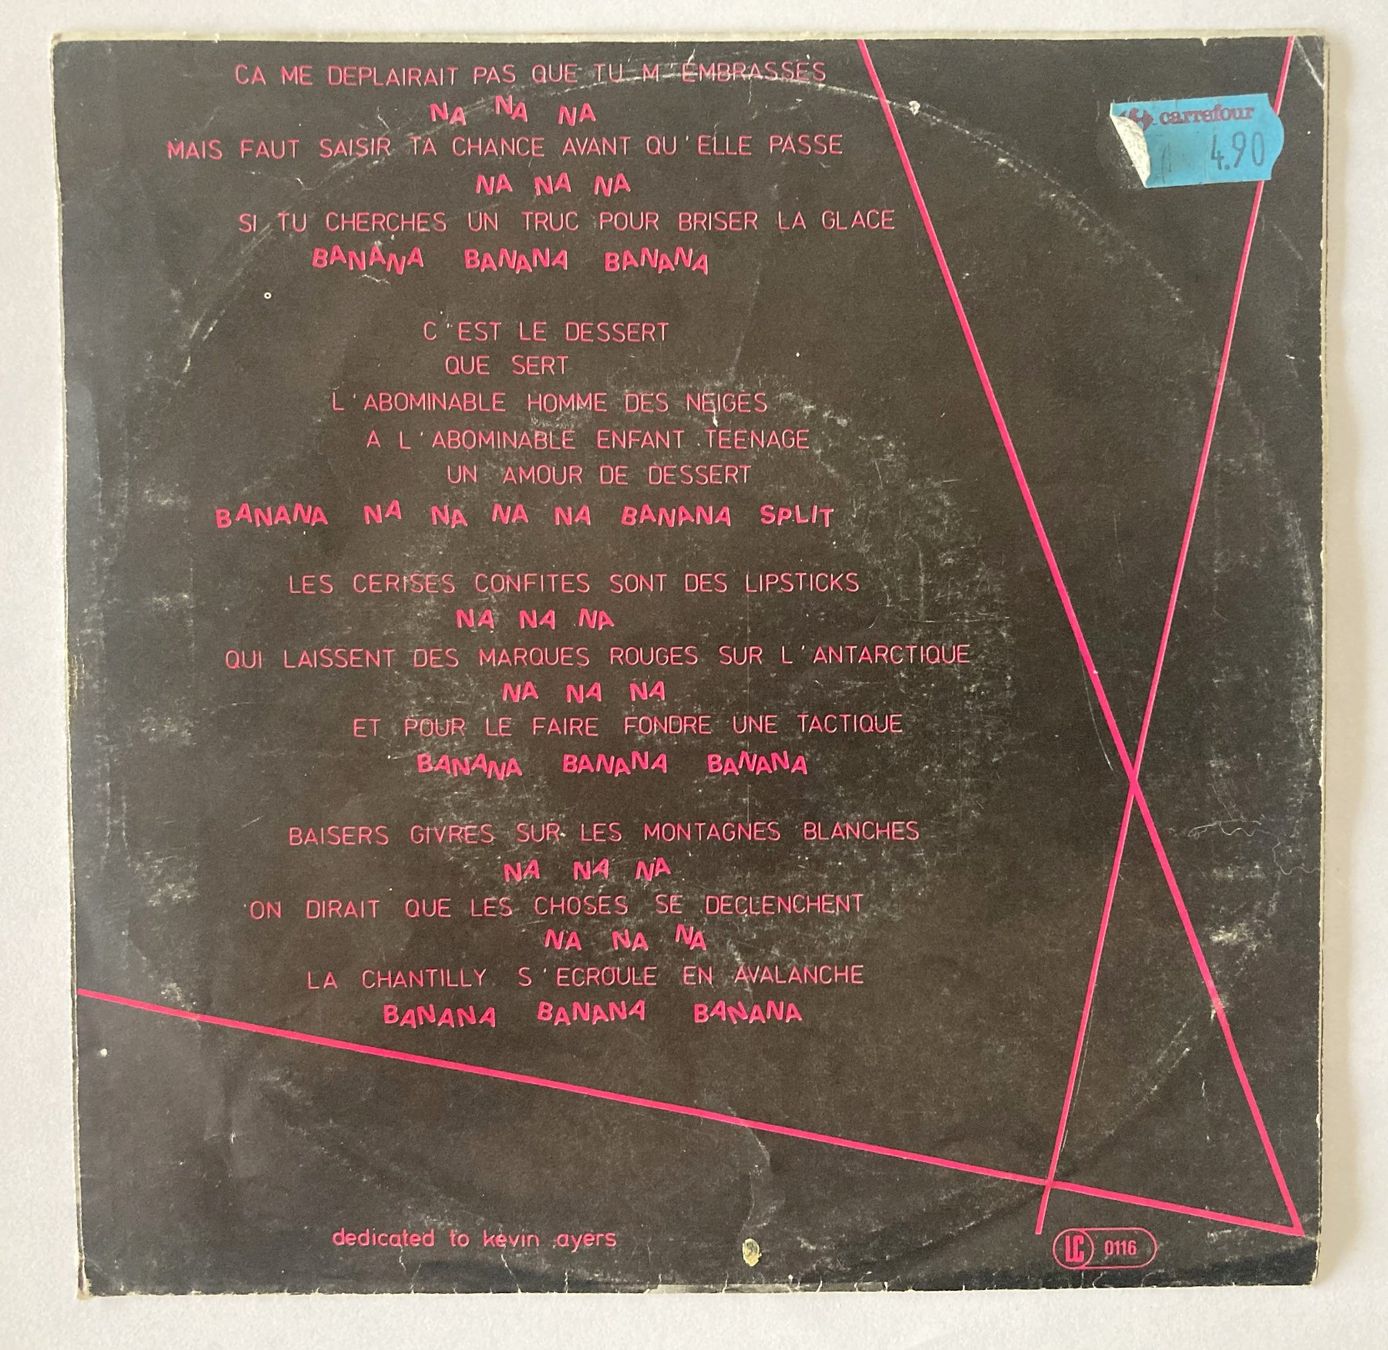 CA ME DEPLAIRAIT PAS QUE TU M'EMBRASSES
NA NA NA
MAIS FAUT SAISIR TA CHANCE AVANT QU'ELLE PASSE
NA NA NA
SI TU CHERCHES UN TRUC POUR BRISER LA GLACE
BANANA BANANA BANANA
C'EST LE DESSERT
QUE SERT
L'ABOMINABLE HOMME DES NEIGES
A L'ABOMINABLE ENFANT TEENAGE
UN AMOUR DE DESSERT
BANANA NA NA NA NA BANANA SPLIT
LES CERISES CONFITES SONT DES LIPSTICKS
NA NA NA
QUI LAISSENT DES MARQUES ROUGES SUR L'ANTARCTIQUE
NA NA NA
ET POUR LE FAIRE FONDRE UNE TACTIQUE
BANANA BANANA BANANA
BAISERS GIVRES SUR LES MONTAGNES BLANCHES
NA NA NA
ON DIRAIT QUE LES CHOSES SE DECLENCHENT
NA NA NA
LA CHANTILLY S'ECROULE EN AVALANCHE
BANANA BANANA BANANA
dedicated to kevin ayers
carrefour
4.90
LC 0116